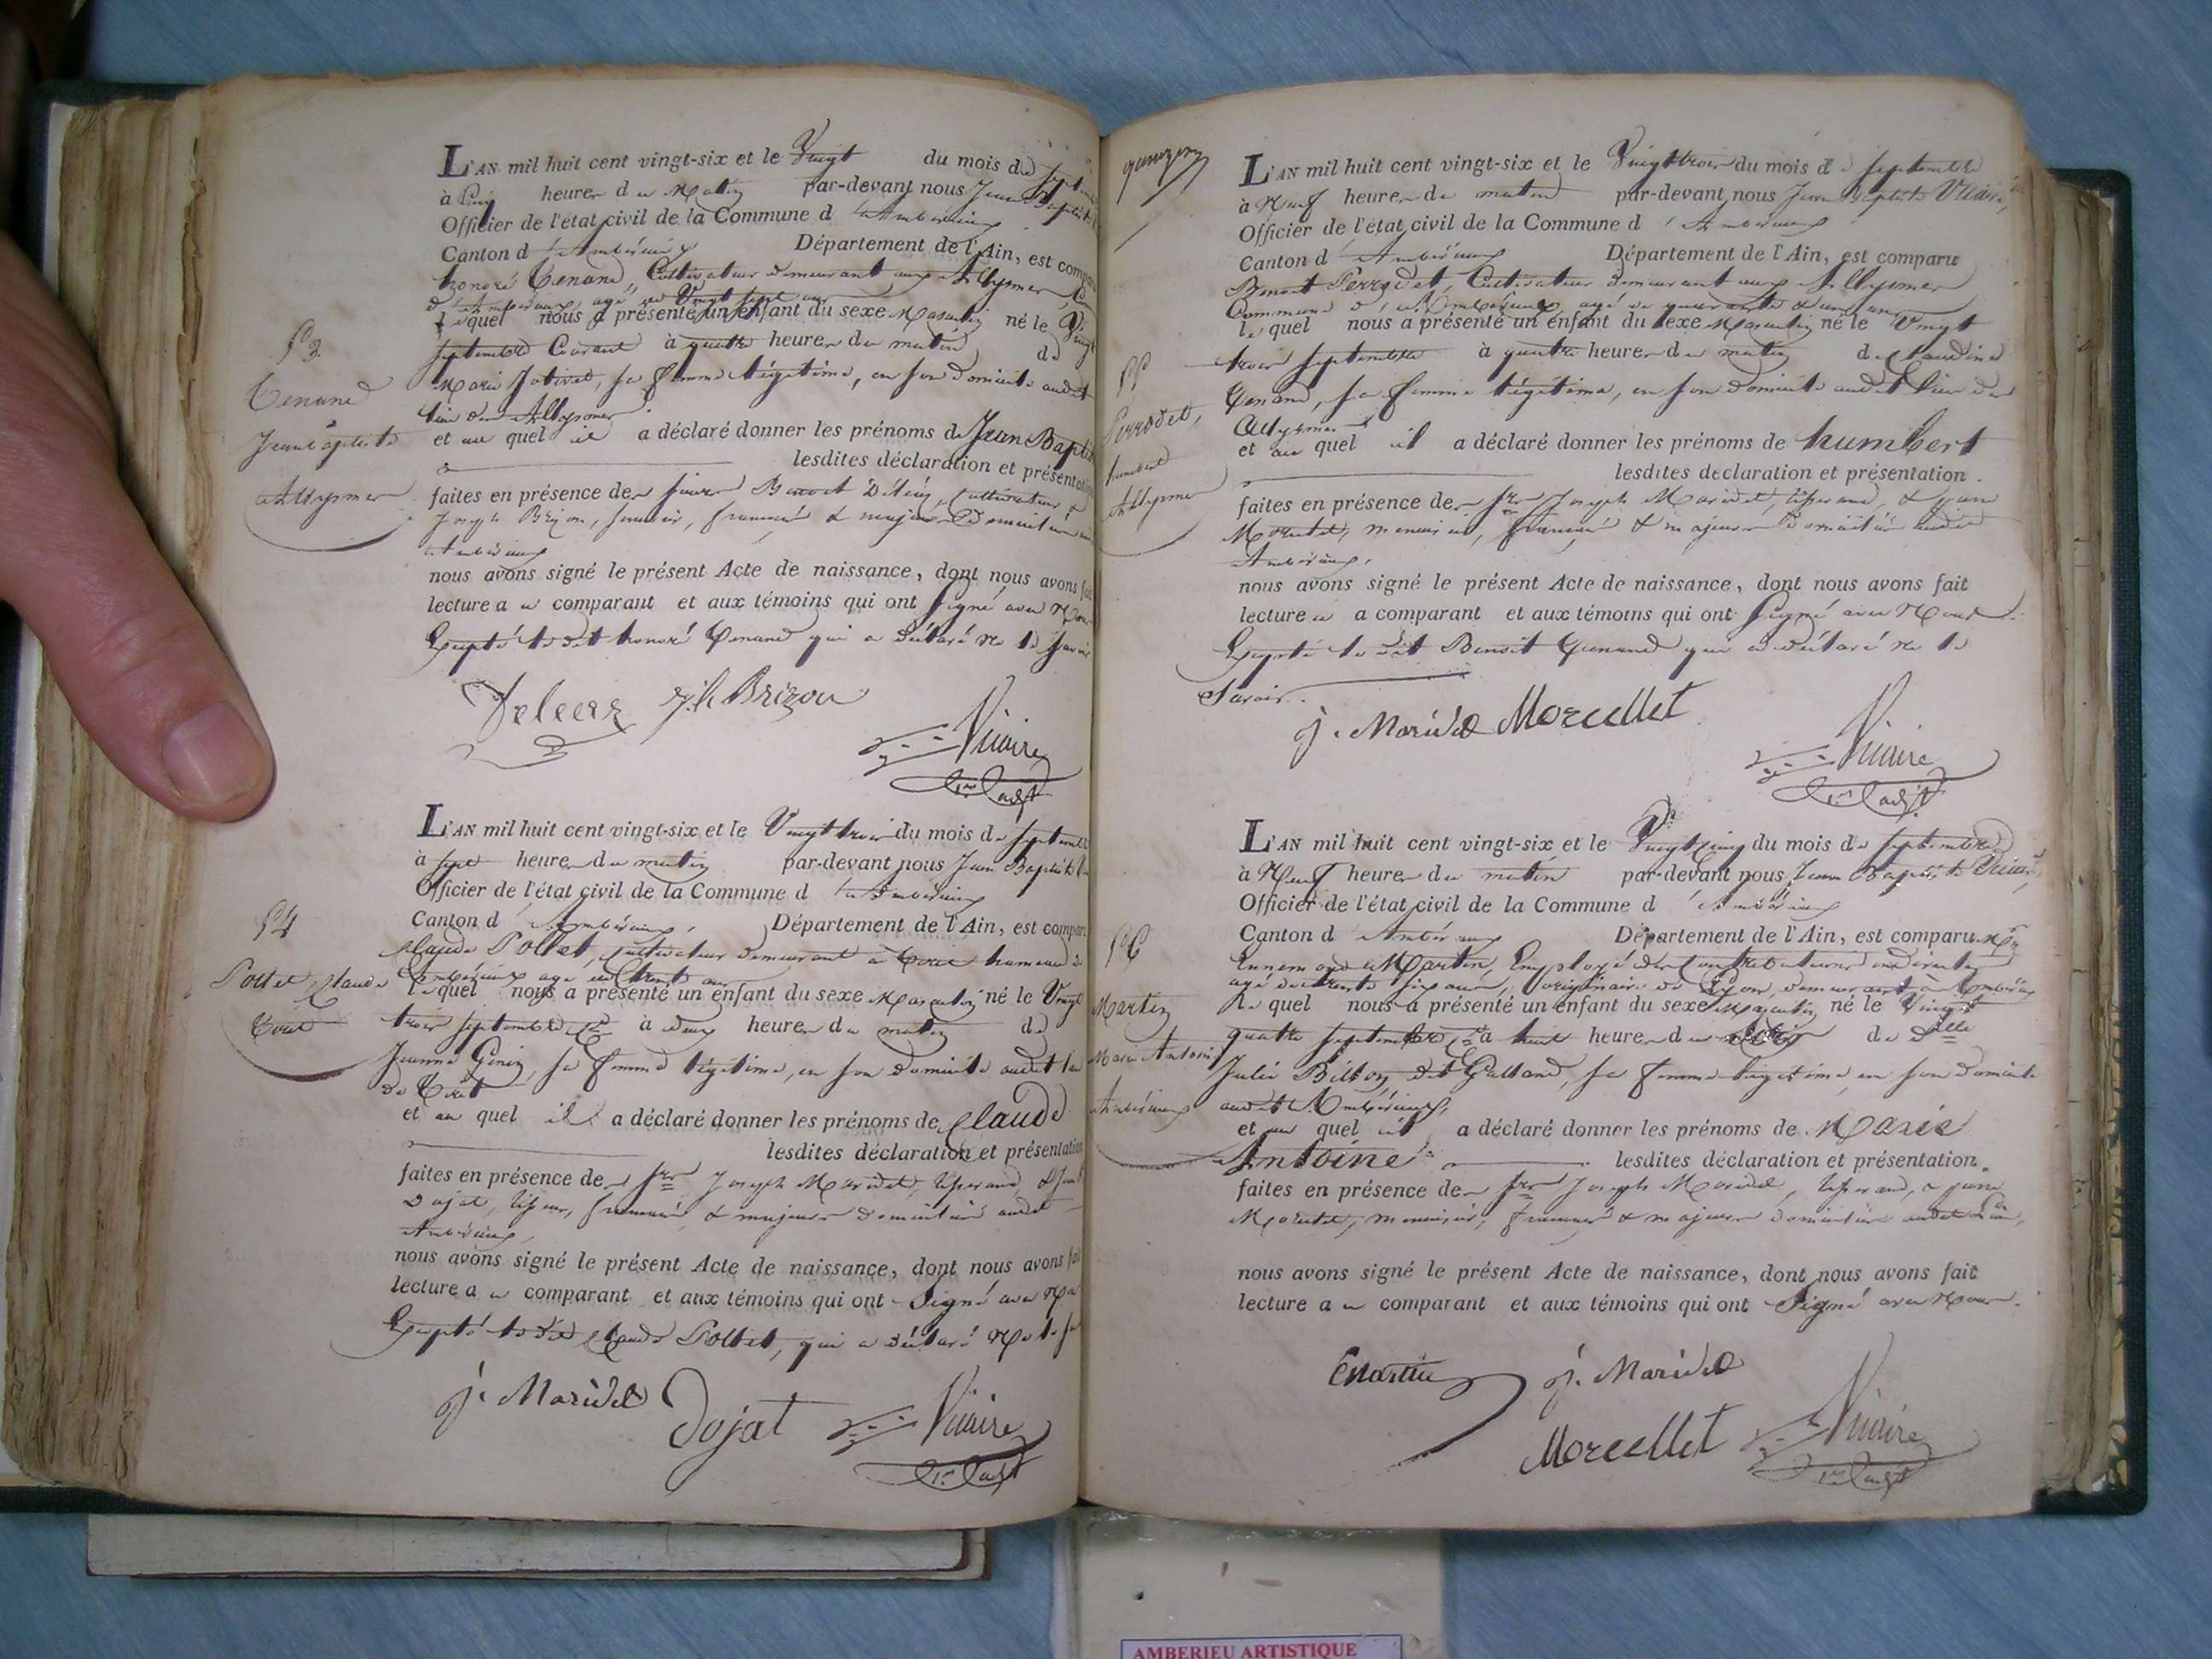 L'AN mil huit cent vingt-six et le Vingt du mois de
à heures du Matin par-devant nous Jean Baptiste
Officier de l'état civil de la Commune d'Ambérieux
Canton d'Ambérieux Département de l'Ain, est comparu
honoré Cenand, Cultivateur demeurant aux Allymes
d'Ambérieux, agé de Vingt sept ans
lequel nous a présenté un enfant du sexe Masculin né le Vingt
Septembre Courant à quatre heures du matin de
Marie sa femme légitime, en son domicile audit
lieu des Allymes
et au quel il a déclaré donner les prénoms de Jean Baptiste
lesdites déclaration et présentation
faites en présence des sieurs Benoit cultivateur
Joseph Brizon, français & majeurs domiciliés
Ambérieux
nous avons signé le présent Acte de naissance, dont nous avons fait
lecture au comparant et aux témoins qui ont signé avec Nous
Excepté le dit honoré Cenand qui a déclaré ne le savoir
Jh Brizon
Vicaire
1er adjt
53
Cenand
Jean Baptiste
Allymes
L'AN mil huit cent vingt-six et le Vingt trois du mois de Septembre
à Sept heures du matin par-devant nous Jean Baptiste
Officier de l'état civil de la Commune d'Ambérieux
Canton d'Ambérieux, Département de l'Ain, est comparu
Claude Pollet, cultivateur demeurant à hameau
Ambérieux agé de trente ans
lequel nous a présenté un enfant du sexe Masculin né le Vingt
trois Septembre à deux heures du matin de
Jeanne Genin, sa femme légitime, en son domicile audit
de
et au quel il a déclaré donner les prénoms de Claude
lesdites déclaration et présentation
faites en présence des Srs Joseph Maridet, tisserand, &
Dojat, français & majeurs domiciliés audit
Ambérieux,
nous avons signé le présent Acte de naissance, dont nous avons fait
lecture au comparant et aux témoins qui ont Signé avec
Excepté le dit Claude Pollet, qui a déclaré ne le
j. Maridet Dojat Vicaire
1er adjt
54
Pollet, Claude
L'AN mil huit cent vingt-six et le Vingt trois du mois de Septembre
à Neuf heures du matin par-devant nous Jean Baptiste Vicaire,
Officier de l'état civil de la Commune d'Ambérieux
Canton d'Ambérieux Département de l'Ain, est comparu
Benoit Perrodet, Cultivateur demeurant aux Allymes
Commune d'Ambérieux, agé de quarante & un ans
lequel nous a présenté un enfant du sexe Masculin né le Vingt
trois Septembre à quatre heures du matin de Claudine
Cenand, sa femme légitime, en son domicile audit lieu des
Allymes
et au quel il a déclaré donner les prénoms de humbert
lesdites declaration et présentation.
faites en présence des Srs Joseph Maridet, tisserand, &
menuisier, français & majeurs domiciliés audit
Ambérieux,
nous avons signé le présent Acte de naissance, dont nous avons fait
lecture au comparant et aux témoins qui ont Signé avec Nous
Excepté le dit Benoit Cenand qui a déclaré ne le
Savoir.
j. Maridet Morcellet
Vicaire
1er adjt
55
Perrodet,
humbert
Allymes
L'AN mil huit cent vingt-six et le Vingt cinq du mois de Septembre
à Neuf heures du matin par-devant nous Jean Baptiste Vicaire,
Officier de l'état civil de la Commune d'Ambérieux
Canton d'Ambérieux Département de l'Ain, est comparu
Ennemond Martin, Employé des Contributions indirectes
agé de trente six ans, originaire de Lyon, demeurant à Ambérieux
lequel nous a présenté un enfant du sexe Masculin né le Vingt
quatre Septembre à huit heures du de Dlle
Julie dit Galland, sa femme légitime, en son domicile
audit Ambérieux,
et au quel il a déclaré donner les prénoms de Marie
Antoine lesdites déclaration et présentation.
faites en présence des Srs Joseph Maridet, tisserand, &
menuisier, français & majeurs domiciliés audit lieu,
nous avons signé le présent Acte de naissance, dont nous avons fait
lecture au comparant et aux témoins qui ont Signé avec Nous.
EMartin j. Maridet
Morcellet Vicaire
1er adjt
56
Martin
Marie Antoine
Ambérieux
AMBERIEU ARTISTIQUE